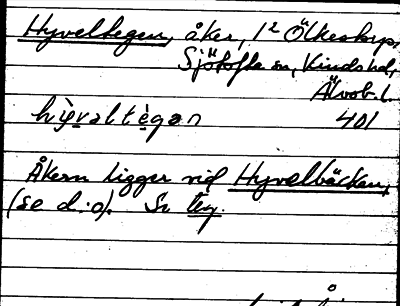 Hyveltegen, åker, 1² Ölkestorp,
Sjötofta sn, Kinds hd,
Älvsb. l.
hỳvəltègən 401
Åkern ligger vid Hyvelbäcken,
(se d. o). Se teg.